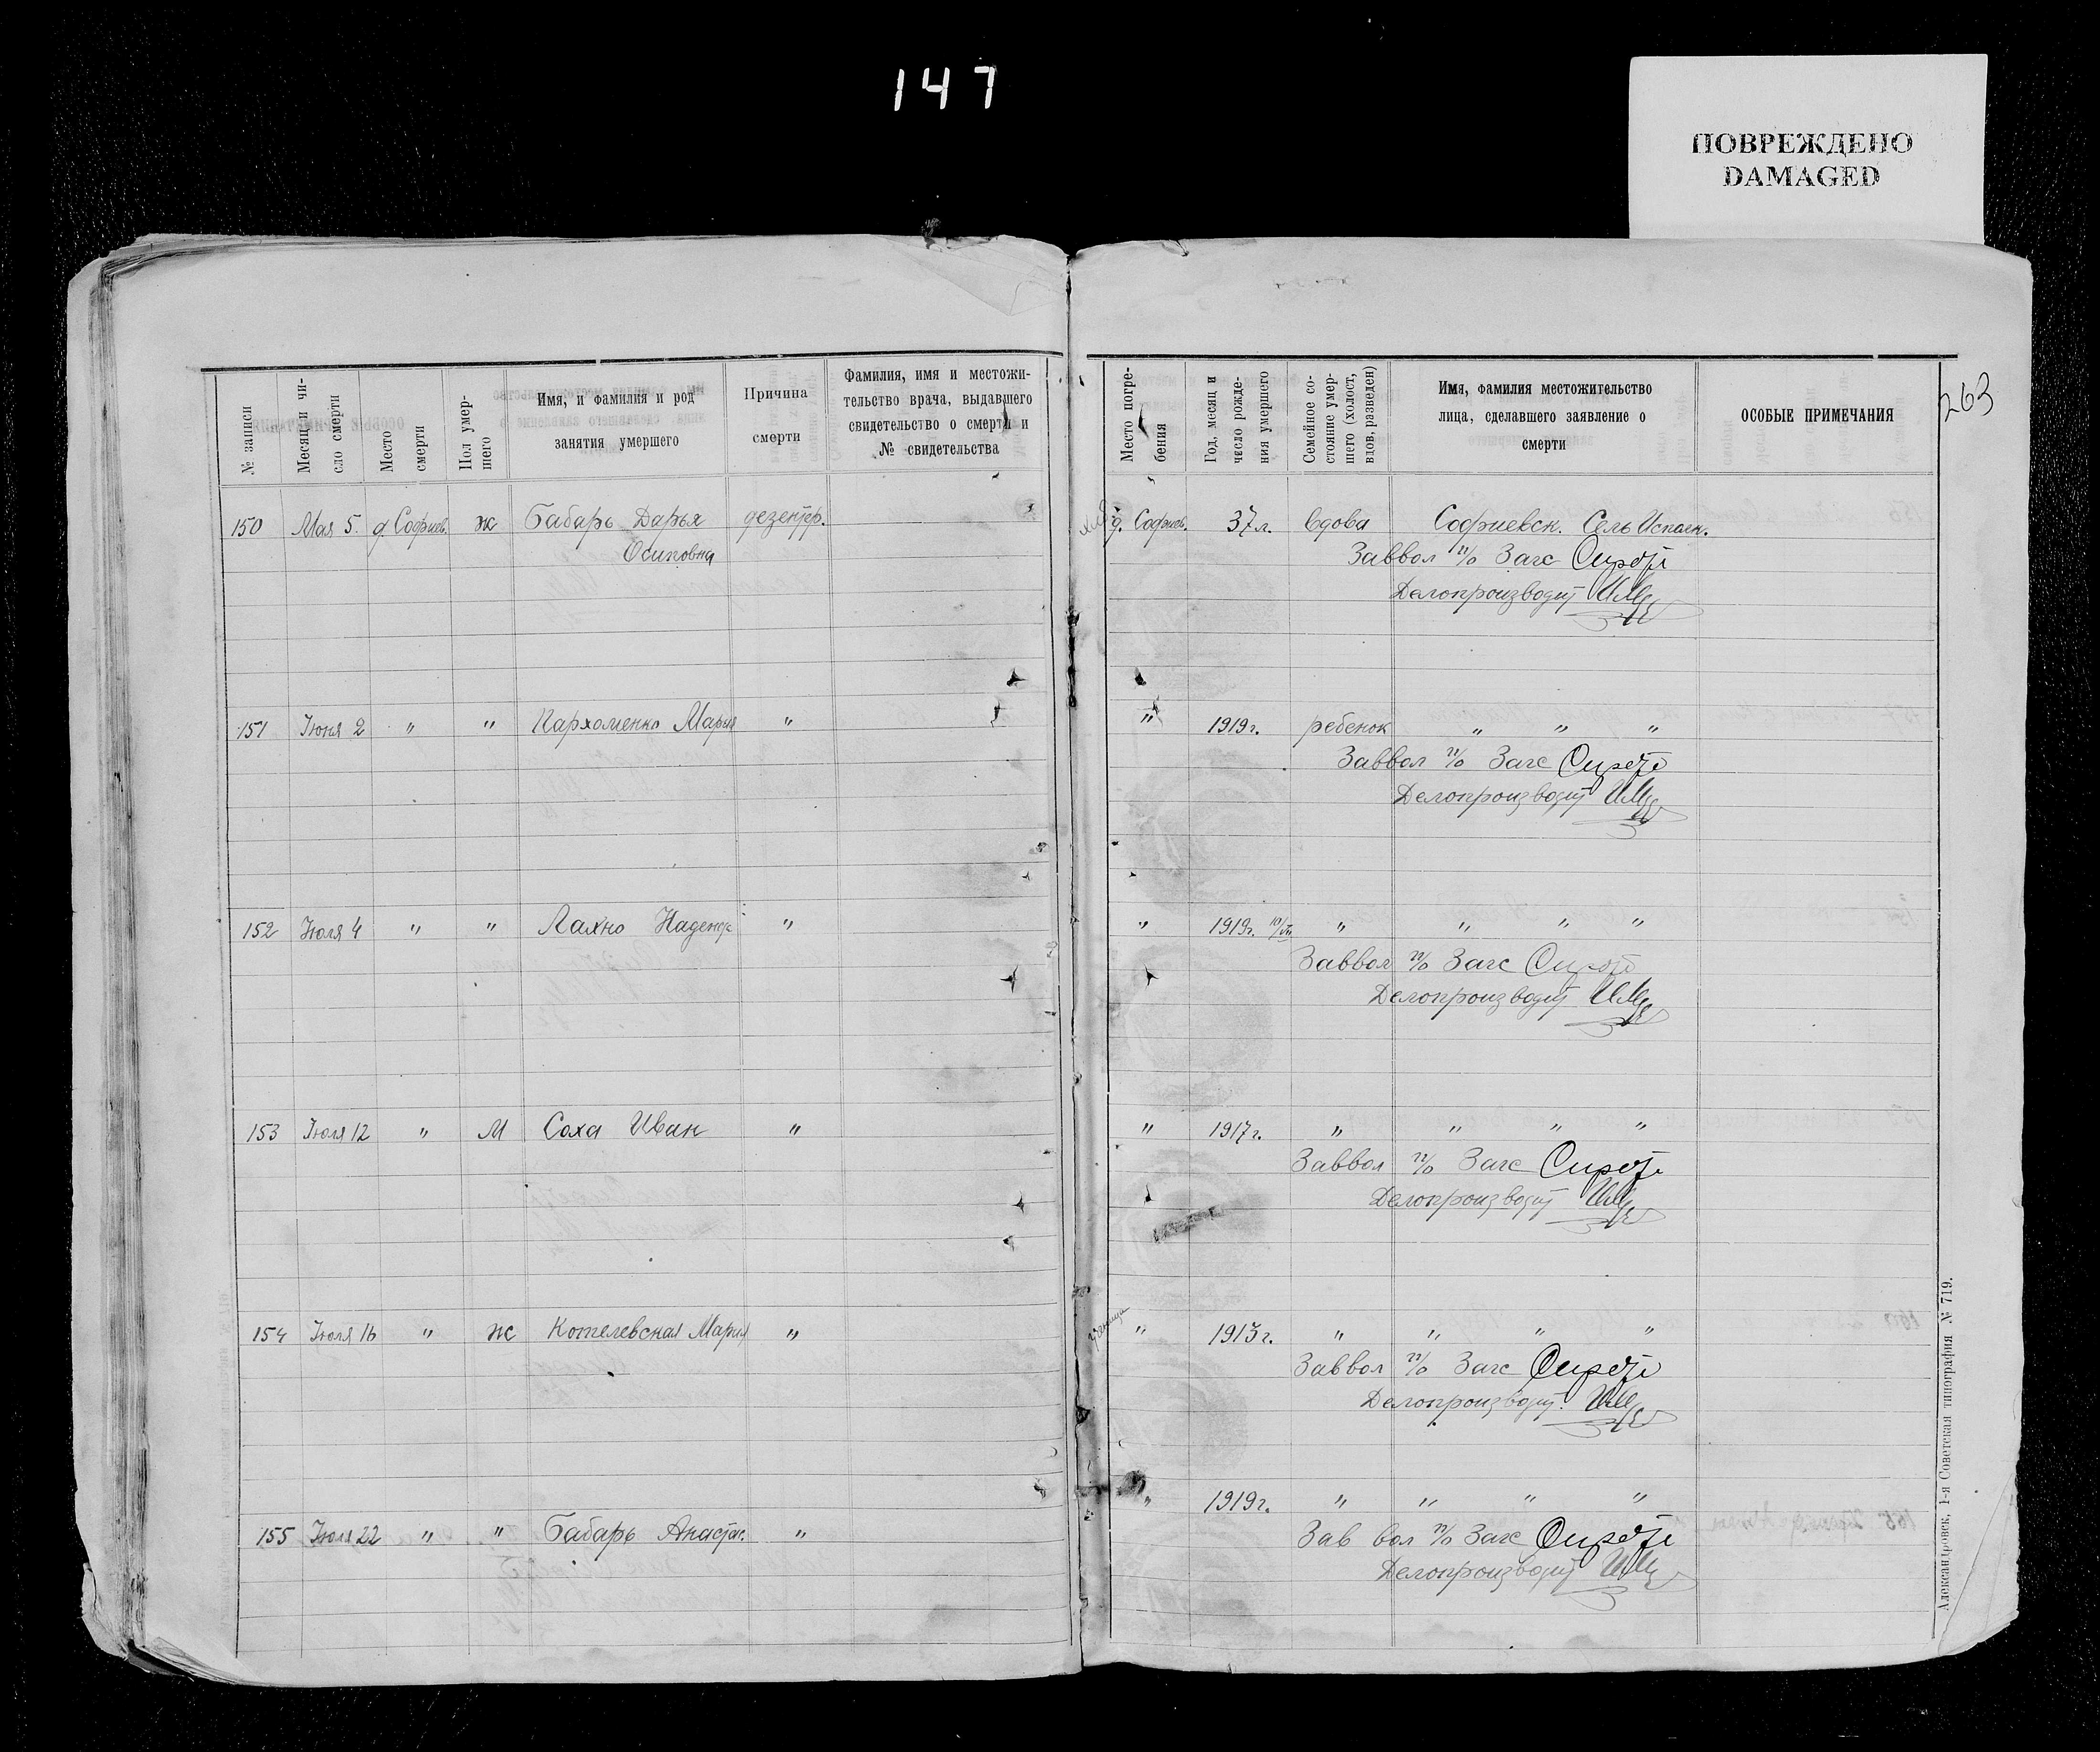 147
ПОВРЕЖДЕНО
DAMAGED
263
№ записи
Месяц и чи-
сло смерти
Место
смерти
Пол умер-
шего
Имя, и фамилия и род
занятия умершего
Причина
смерти
Фамилия, имя и местожи-
тельство врача, выдавшего
свидетельство о смерти и
№ свидетельства
Место погре-
бения
Год, месяц и
число рожде-
ния умершего
Семейное со-
стояние умер-
шего (холост,
вдов, разведен)
Имя, фамилия местожительство
лица, сделавшего заявление о
смерти
ОСОБЫЕ ПРИМЕЧАНИЯ
150 Мая 5. д. Софиев. ж Бабарь Дарья дезентер. д. Софиев. 37 л. вдова Софиевск. Сель Исполк.
Осиповна
Заввол п/о Загс
Делопроизводит
151 Июня 2 " " Пархоменко Мария " " 1919г. ребенок " " "
Заввол п/о Загс
Делопроизводит
152 Июля 4 " " Лахно Надежд " " 1919г. " " " "
Заввол п/о Загс
Делопроизводит
153 Июля 12 " М Соха Иван " " 1917г. " " " "
Заввол п/о Загс
Делопроизводит
154 Июля 16 " ж Котелевская Мария " " 1913г. " " " "
Заввол п/о Загс
Делопроизводит.
155 Июля 22 " " Бабарь Анастас. " " 1919г. " " " "
Зав вол п/о Загс
Делопроизводит
Александровск, 1-я Советская типография № 719.